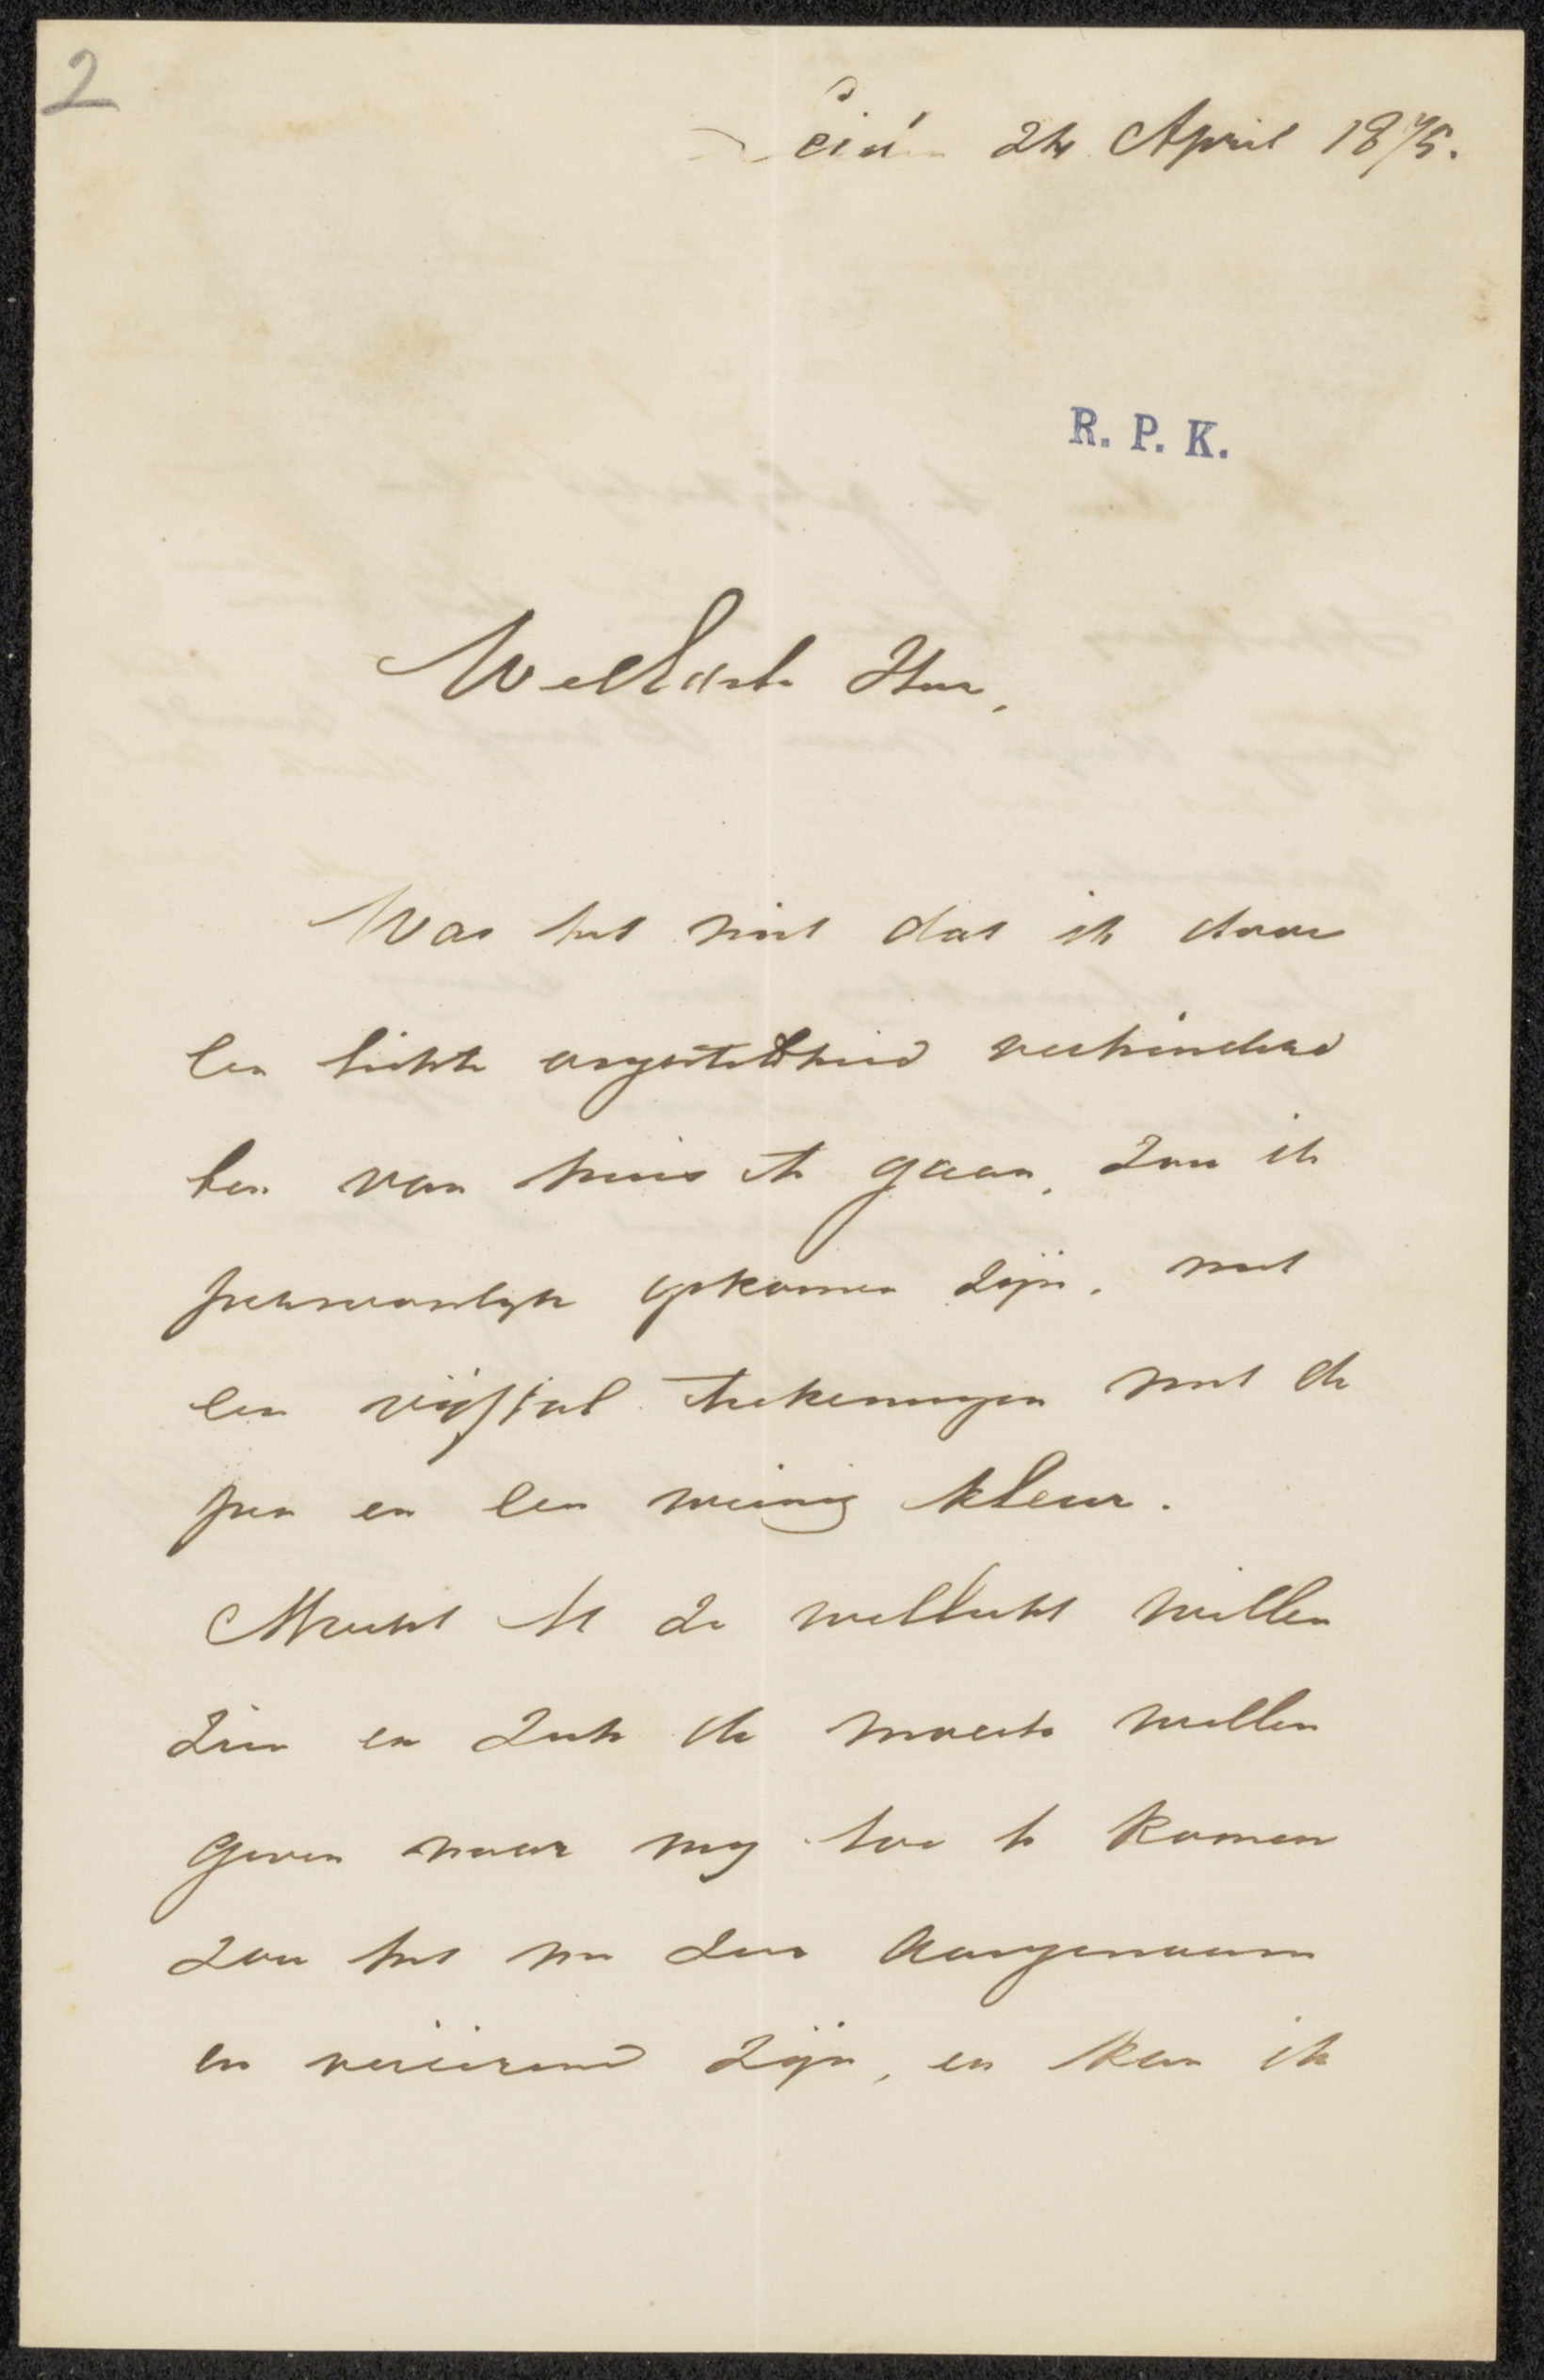 2
24 April 1875.
R. P. K.
WelEdele Heer,
Was het niet dat ik door
een lichte ongesteldheid verhinderd
ben van huis te gaan, zou ik
persoonlijk gekomen zijn, met
een vijftal teekeningen met de
pen en een weinig kleur.
Mocht U ze wellicht willen
zien en zich de moeite willen
geven naar mij toe te komen
zou het me zeer aangenaam
en vereerend zijn, en kan ik